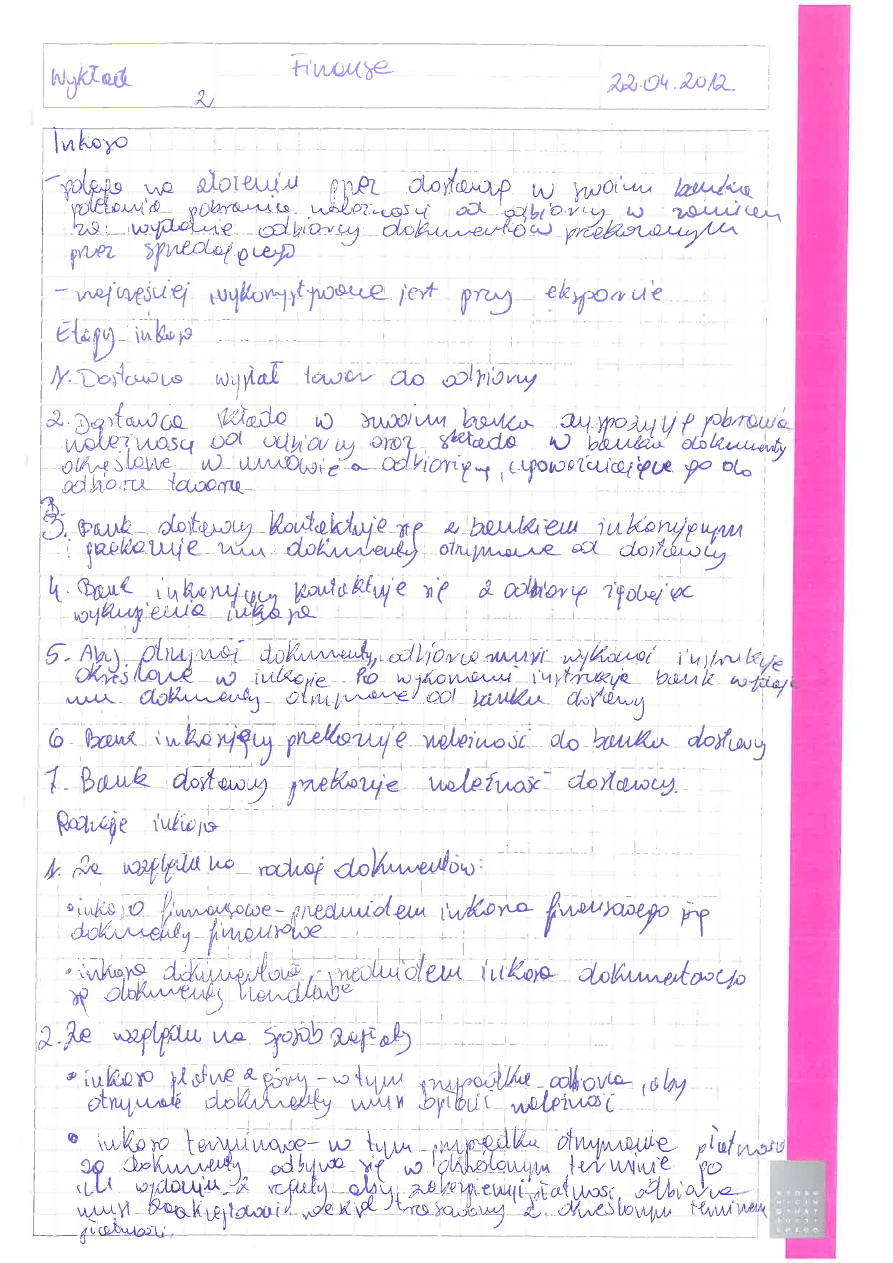 Wykład 2 Finanse 22.04.2012.
Inkaso
- polega na złożeniu przez dostawcę w swoim banku
polecenia pobrania należności od odbiorcy w zamian
za wydanie odbiorcy dokumentów przekazanych
przez sprzedającego
- najczęściej wykorzystywane jest przy eksporcie
Etapy inkasa
1. Dostawca wysłał towar do odbiorcy
2. Dostawca składa w swoim banku dyspozycję pobrania
należności od odbiorcy oraz składa w banku dokumenty
określone w umowie z odbiorcą, upoważniające go do
odbioru towaru
3. Bank dostawcy kontaktuje się z bankiem inkasującym
i przekazuje mu dokumenty otrzymane od dostawcy
4. Bank inkasujący kontaktuje się z odbiorcą żądając
wykupienia inkasa
5. Aby otrzymać dokumenty, odbiorca musi wykonać instrukcje
określone w inkasie. Po wykonaniu instrukcji bank wydaje
mu dokumenty otrzymane od banku dostawcy
6. Bank inkasujący przekazuje należność do banku dostawcy
7. Bank dostawcy przekazuje należność dostawcy.
Rodzaje inkasa
1. Ze względu na rodzaj dokumentów:
• inkaso finansowe - przedmiotem inkasa finansowego są
dokumenty finansowe
• inkaso dokumentowe - przedmiotem inkasa dokumentowego
są dokumenty handlowe
2. Ze względu na sposób zapłaty
• inkaso płatne z góry - w tym przypadku odbiorca, aby
otrzymać dokumenty musi opłacić należność
• inkaso terminowe - w tym przypadku otrzymanie płatności
za dokumenty odbywa się w określonym terminie po
ich wydaniu. Z reguły aby zabezpieczyć płatność odbiorca
musi zaakceptować weksel trasowany z określonym terminem
płatności.